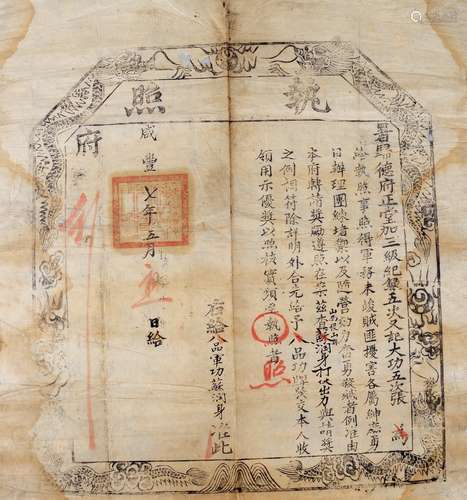 執照
署歸德府正堂加三級紀錄五次又記大功五次張 為
給執照事照得軍務未竣賊匪擾害各屬紳庶勇
日辦理團練堵禦以及隨營効力奮勇殺賊者例准由
本府轉請獎勵遵照在案茲查蘇潤身打仗出力與請獎
之例詞符除詳明外合先給予八品功牌發交本人收
領用示優獎以照核實須至執照者
照
右給八品軍功蘇潤身准此
咸豐七年五月 日給
府